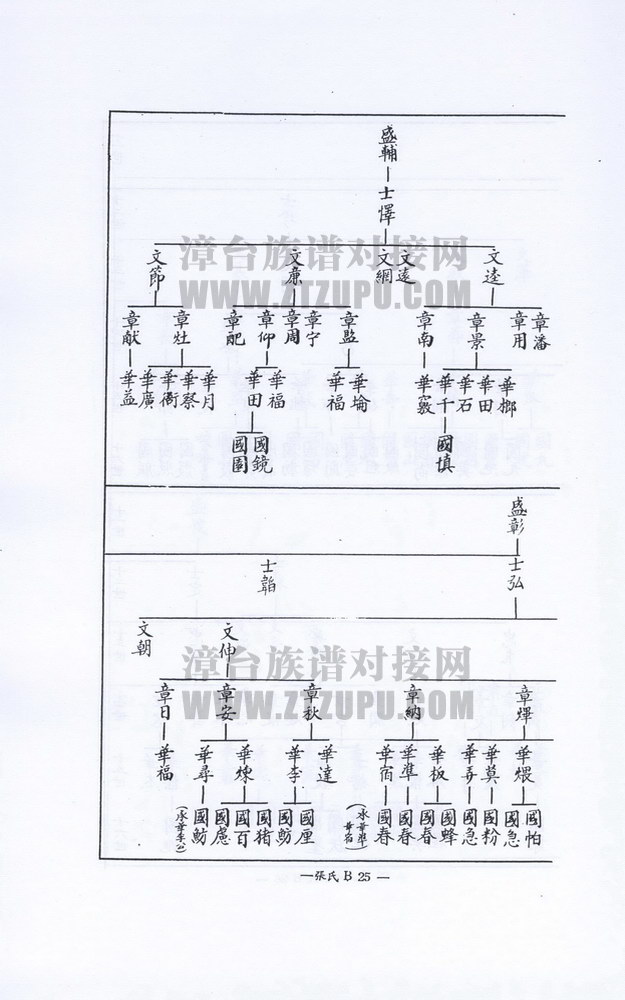 盛輔
士懌
文逵
文遠
文網
文廉
文節
章潘
章用
章景
章南
章監
章宁
章周
章仰
章配
章灶
章献
華榔
華田
華石
華千
華竅
華埨
華福
華福
華田
華月
華祭
華衙
華廣
華益
國填
國鏡
國園
漳台族谱对接网
WWW.ZTZUPU.COM
盛彰
士弘
士韜
文仲
文朝
章燡
章納
章秋
章安
章日
華煨
華莫
華弄
華板
華準
華宿
華達
華李
華煉
華尋
華福
國帕
國急
國粉
國急
國蜂
國春
國春
國春
國厘
國魴
國猪
國百
國慮
國魴
漳台族谱对接网
WWW.ZTZUPU.COM
—張氏 B 25—